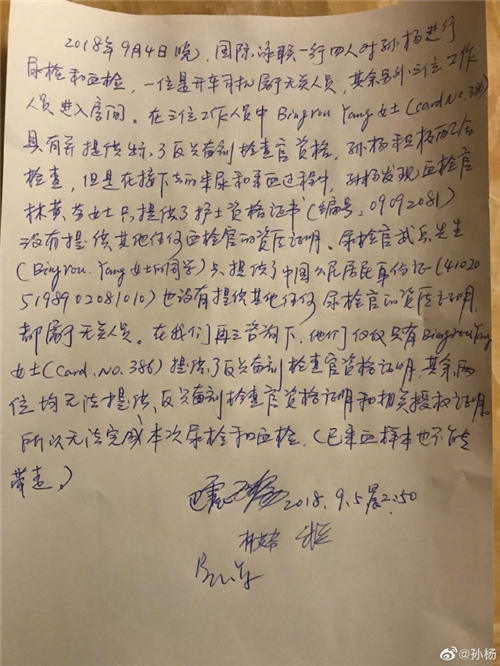 2018年9月4日晚,国际泳联一行四人对孙杨进行
尿检和血检,一位是开车司机属于无关人员,其余另外三位工作
人员进入房间。在三位工作人员中Bingrou Yang女士(card.No.386)
具有并提供出示了反兴奋剂检查官资格,孙杨积极配合
检查,但是在接下去的采尿和采血过程中,孙杨发现血检官
女士只提供了护士资格证书(编号:09092081)
没有提供其他任何血检官的资质证明。尿检官先生
(Bingrou.Yang女士的同学)只提供了中国公民居民身份证(41020
5198902081010)也没有提供其他任何尿检官的资质证明,
都属于无关人员。在我们再三咨询下,他们仅仅只有Bingrou Yang
女士(Card.No.386)提供了反兴奋剂检查官资格证明,其余两
位均无法提供反兴奋剂检查官资格证明和相关授权证明。
所以无法完成本次尿检和血检。(已采血样本也不能
带走。)
2018.9.5晨2:50
@孙杨